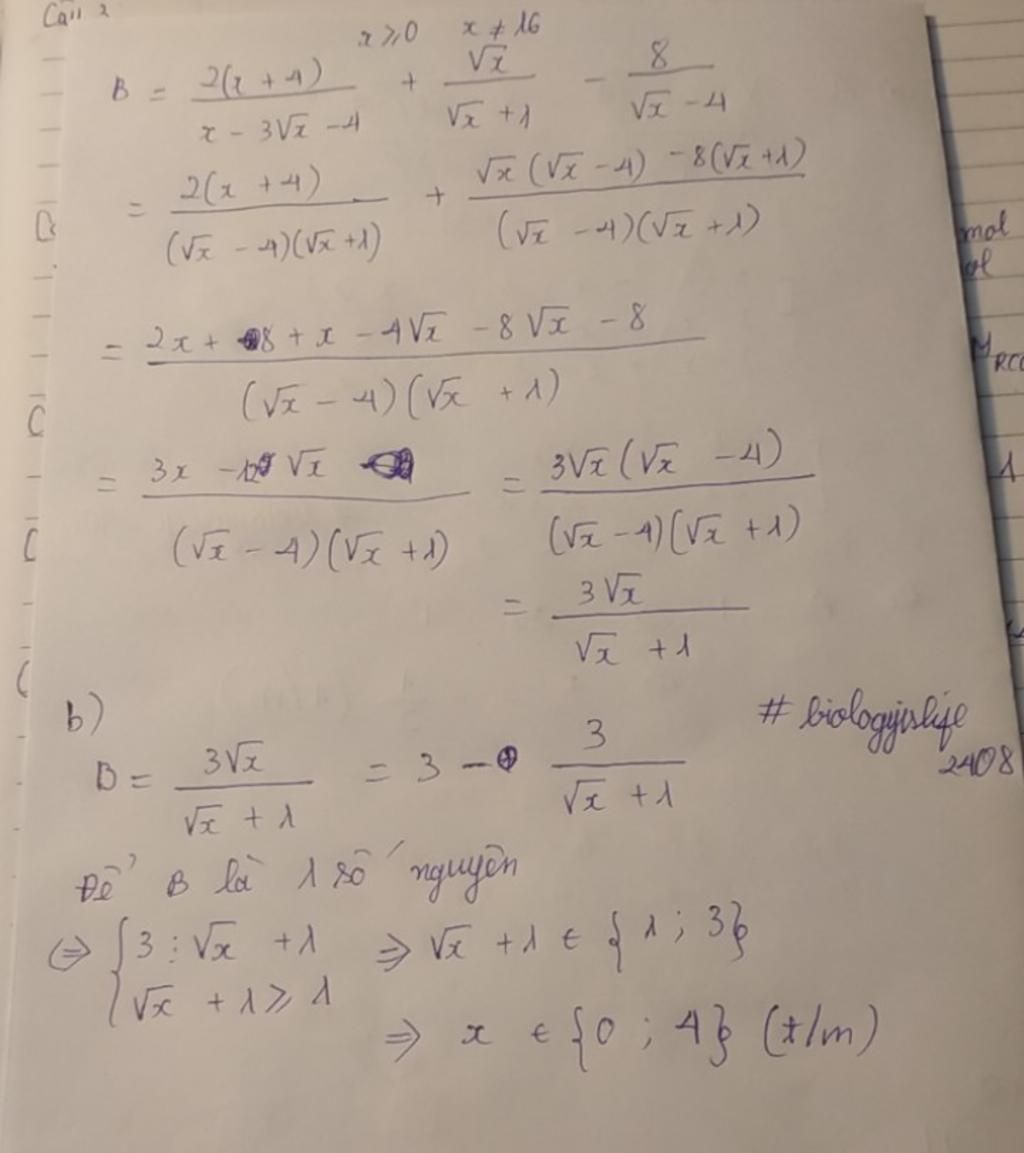 Câu 2
x ≥ 0 x ≠ 16
B = \frac{2(x + 4)}{x - 3√x - 4} + \frac{√x}{√x + 1} - \frac{8}{√x - 4}
= \frac{2(x + 4)}{(√x - 4)(√x + 1)} + \frac{√x(√x - 4) - 8(√x + 1)}{(√x - 4)(√x + 1)}
= \frac{2x + 8 + x - 4√x - 8√x - 8}{(√x - 4)(√x + 1)}
= \frac{3x - 12√x}{(√x - 4)(√x + 1)} = \frac{3√x(√x - 4)}{(√x - 4)(√x + 1)}
= \frac{3√x}{√x + 1}
b)
# biologyislife
2408
B = \frac{3√x}{√x + 1} = 3 - \frac{3}{√x + 1}
Để B là 1 số nguyên
⇔ { 3 ⋮ √x + 1 ⇒ √x + 1 ∈ {1 ; 3}
√x + 1 ≥ 1
⇒ x ∈ {0 ; 4} (t/m)
mol
ol
M RCO
1